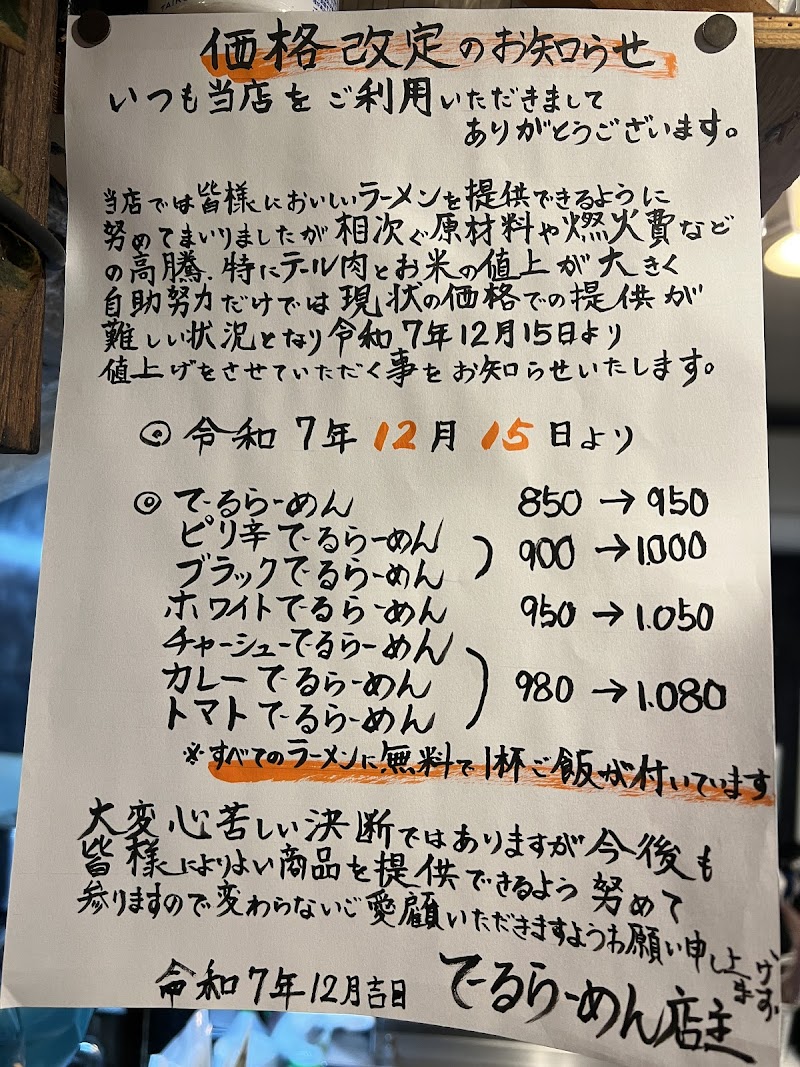 価格改定のお知らせ
いつも当店をご利用いただきまして
ありがとうございます。
当店では皆様においしいラーメンを提供できるように
努めてまいりましたが相次ぐ原材料や燃火費など
の高騰、特にテール肉とお米の値上が大きく
自助努力だけでは現状の価格での提供が
難しい状況となり令和7年12月15日より
値上げをさせていただく事をお知らせいたします。
◎令和7年12月15日より
◎てーるらーめん 850→950
ピリ辛てーるらーめん
ブラックてーるらーめん ) 900→1.000
ホワイトてーるらーめん 950→1.050
チャーシューてーるらーめん
カレーてーるらーめん ) 980→1.080
トマトてーるらーめん
※すべてのラーメンに無料で1杯ご飯が付いています
大変心苦しい決断ではありますが今後も
皆様によりよい商品を提供できるよう努めて
参りますので変わらないご愛顧いただきますようお願い申し上げます。
令和7年12月吉日 てーるらーめん店主